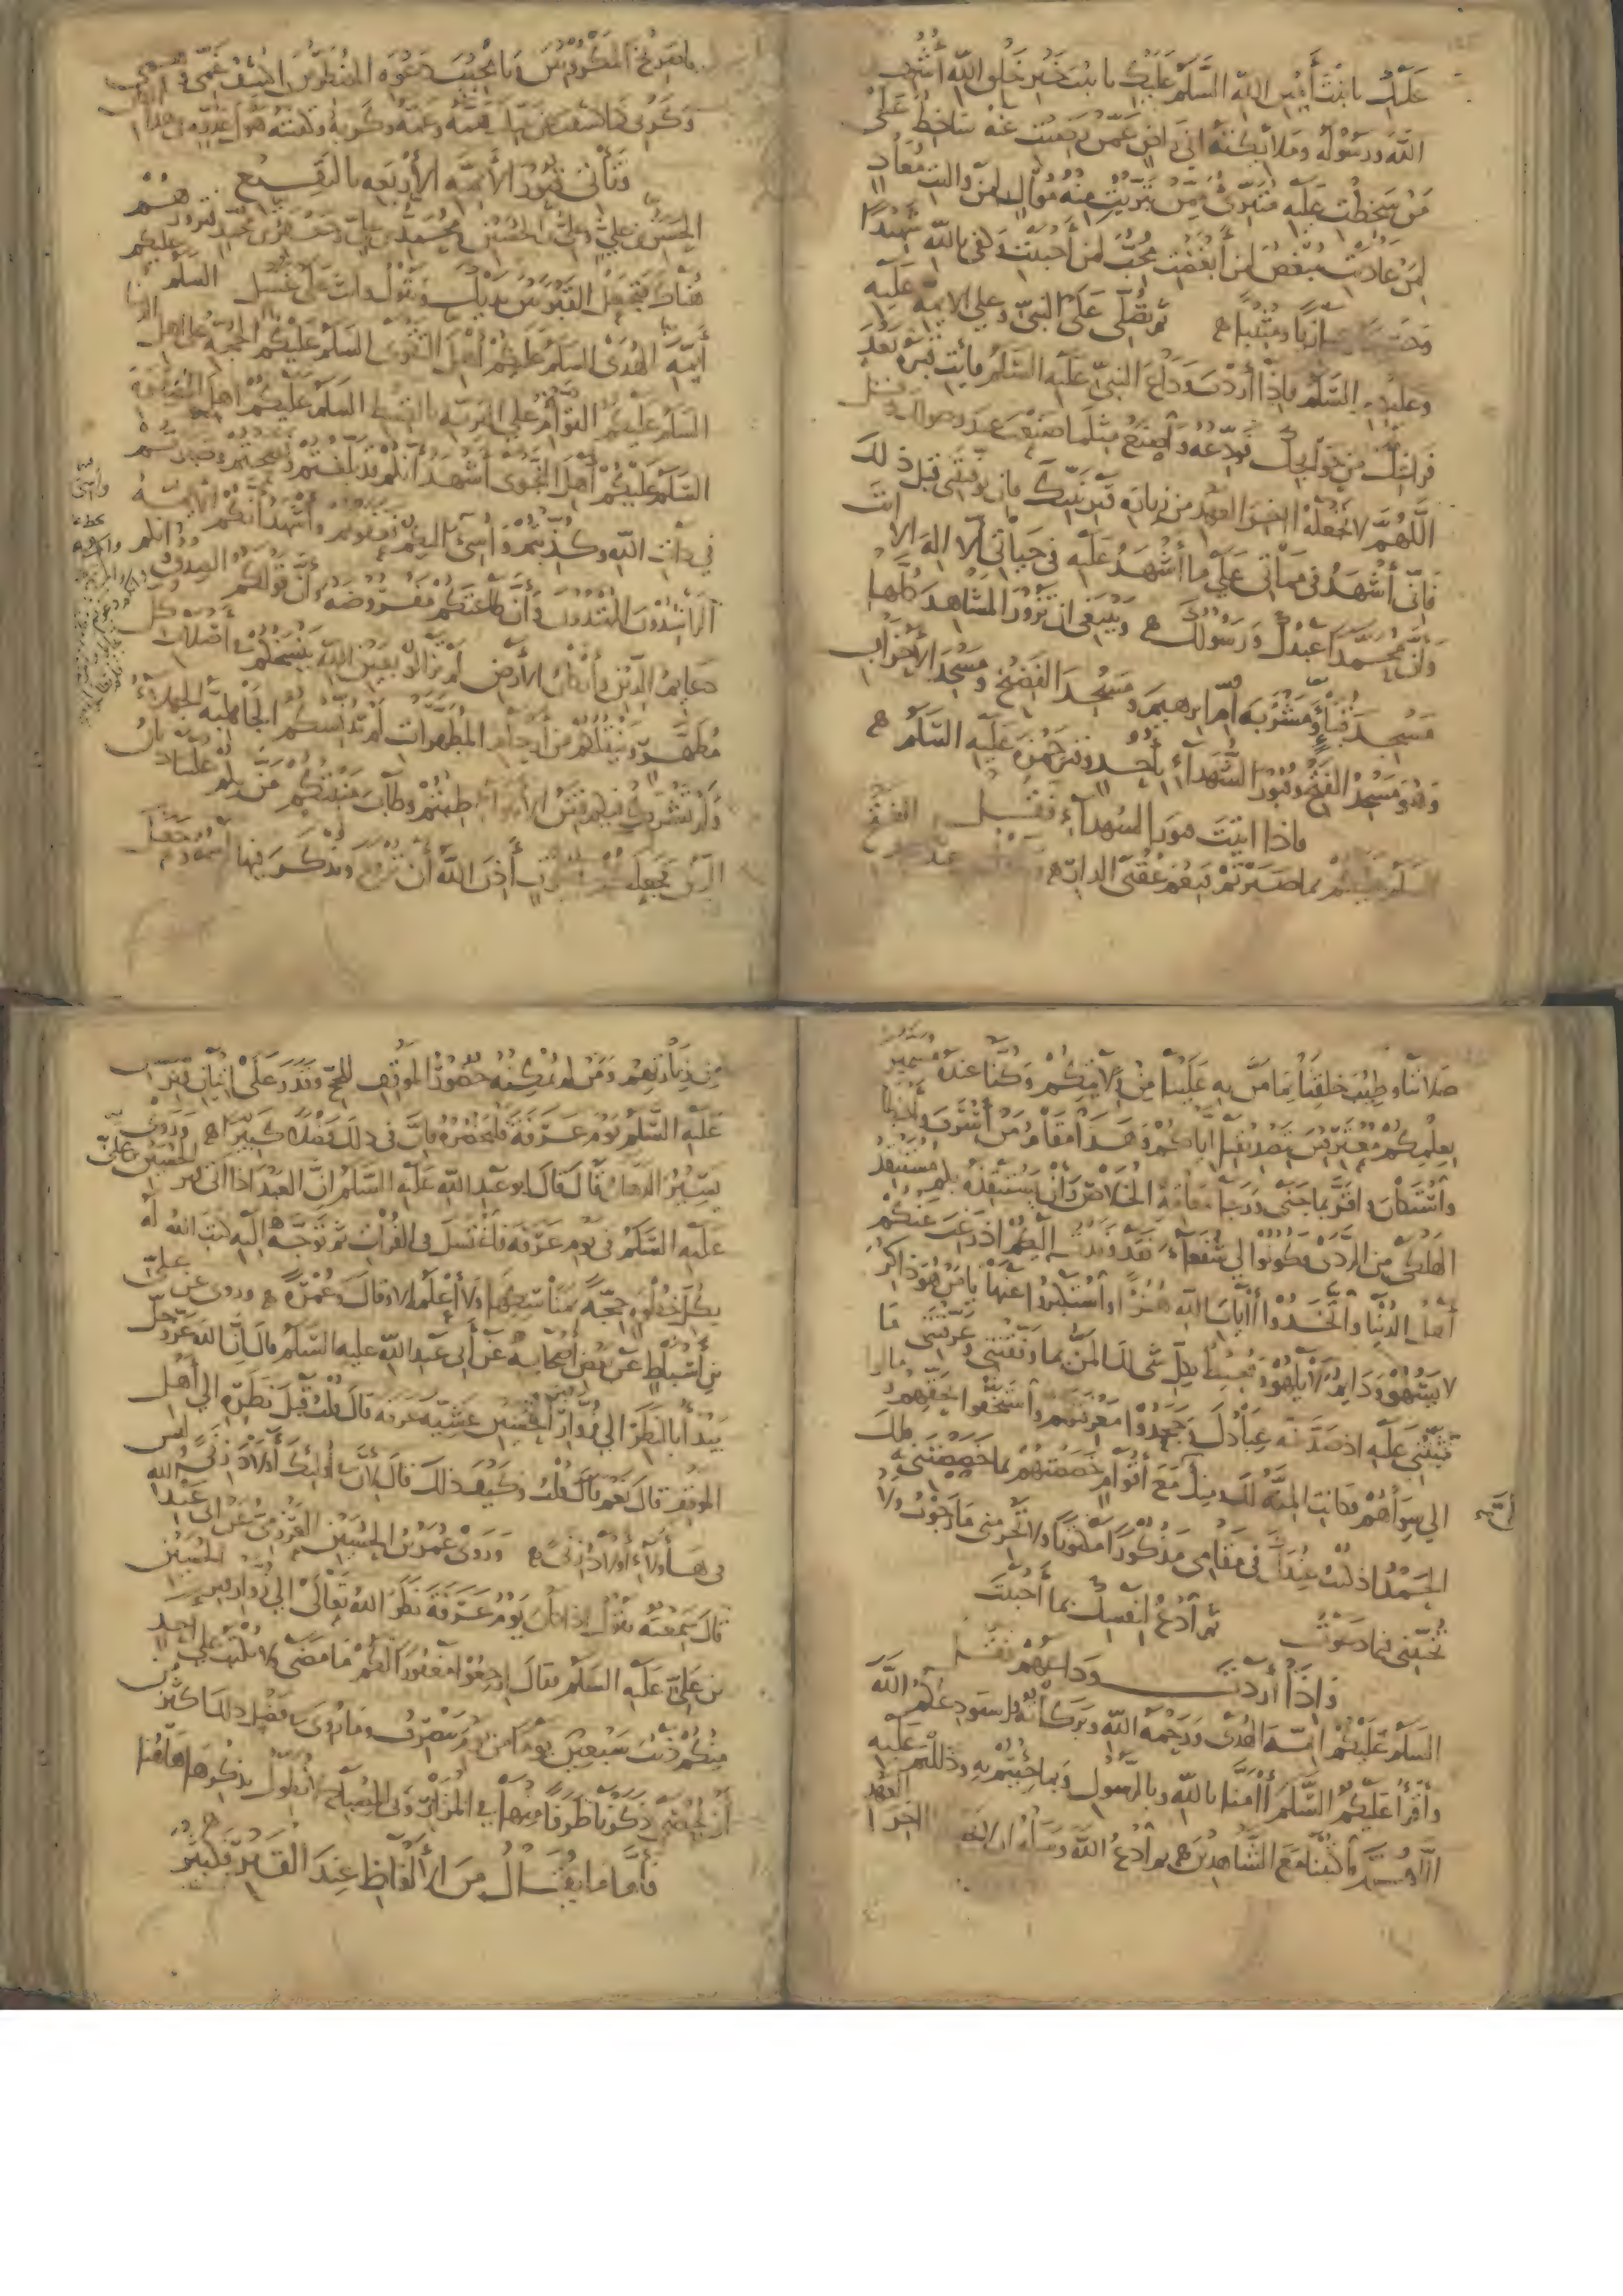 عليك يا بنت أمين الله السلم عليك يا بنت خير خلق الله أشهد
الله ورسوله وملائكته اني راض عمن رضيت عنه ساخط على
من سخطت عليه متبرئ ممن تبريت منه موال لمن واليت معاد
لمن عاديت مبغض لمن أبغضت محب لمن أحببت وكفى بالله شهيدا
وحسيبا وجازيا ومثيبا ثم تصلي على النبي وعلى الائمه عليه
وعليهم السلم فاذا أردت وداع النبي عليه السلم فأت قبره بعد
فراغك من حوايجك فودعه واصنع مثلما صنعت عند وصولك وقل
اللهم لا تجعله اخر العهد من زيارة قبر نبيك فان توفيتني قبل ذلك
فاني أشهد في مماتي على ما أشهد عليه في حياتي ألا اله الا انت
وان محمدا عبدك ورسولك وينبغي ان تزور المشاهد كلها
مسجد قباء ومشربة أم ابرهيم ومسجد الفضيخ ومسجد الأحزاب
وهو مسجد الفتح وقبور الشهداء بأحد وقبر حمزة عليه السلم
فاذا اتيت قبور الشهداء فقل
السلم عليكم بما صبرتم فنعم عقبى الدار
يا صريخ المكروبين ويا مجيب دعوة المضطرين اكشف غمي وهمي
وكربي كما كشفت عن نبيك همه وغمه وكربه وكفيته هول عدوه في هذا المكان
وتأتي قبور الأيمه الأربعه بالبقيع
الحسن بن علي وعلي بن الحسين ومحمد بن علي وجعفر بن محمد تزور هم
هناك فتجعل القبر بين يديك وتقول وانت على غسل السلم عليكم
أيمه الهدى السلم عليكم أهل التقوى السلم عليكم الحجه على أهل الدنيا
السلم عليكم القوام في البريه بالقسط السلم عليكم أهل الصفوة
السلم عليكم أهل النجوى أشهد أنكم قد بلغتم ونصحتم وصبرتم
في ذات الله وكذبتم وأسئ اليكم فغفرتم وأشهد أنكم الأيمه
الراشدون المهتدون وأن طاعتكم مفروضه وأن قولكم الصدق وانكم
دعايم الدين وأركان الأرض لم تزالوا بعين الله ينسخكم في أصلاب كل
مطهر وينقلكم من أرحام المطهرات لم تدنسكم الجاهلية الجهلاء
ولم تشرك فيكم فتن الأهواء طبتم وطاب منبتكم من بكم علينا ديان
الدين فجعلكم في بيوت أذن الله أن ترفع ويذكر فيها اسمه وجعل
صلاتنا وطيب خلقنا بما من به علينا من ولايتكم وكنا عنده مسمين
بعلمكم معترفين بتصديقنا اياكم وهذا مقام من أسرف وأخطا
واستكان واقر بما جنى ورجا بمقامه الخلاص وأن يستنقذه بكم مستنقذ
الهلكى من الردى فكونوا لي شفعاء فقد وفدت اليكم اذ رغب عنكم
أهل الدنيا واتخذوا أايات الله هزوا واستكبروا عنها يا من هو ذاكر
لا يسهو ودايم لا يلهو ومحيط بكل شي لك المن بما وفقتني وعرفتني ما
ثبتني عليه اذ صد عنه عبادك وجحدوا معرفتهم واستخفوا بحقهم ومالوا
الى سواهم فكانت المنة لك منك مع أقوام خصصتهم بما خصصتني به فلك
الحمد اذ كنت عندك في مقامي مذكورا مكتوبا ولا تحرمني ما رجوت ولا
تخيبني فيما دعوت ثم أدع لنفسك بما أحببت
واذا أردت وداعهم فقل
السلم عليكم ايمه الهدى ورحمة الله وبركاته أستودعكم الله
وأقرأ عليكم السلم أامنا بالله وبالرسول وبما جيتم به ودللتم عليه
اللهم فاكتبنا مع الشاهدين ثم أدع الله وسله ان لا يجعله اخر العهد
من زيارتهم ومن لم يمكنه حضور الموقف للحج وقدر على اتيان قبر الحسين
عليه السلم يوم عرفة فليحضره فان في ذلك فضلا كبيرا وروى
بشير الدهان قال قال ابو عبد الله عليه السلم ان العبد اذا اتى قبر الحسين بن علي
عليه السلم في يوم عرفة فاغتسل في الفرات ثم توجه اليه كتب الله له
بكل خطوه حجة بمناسكها ولا أعلمه الا وقال وعمرة وروى عن علي
بن أسباط عن بعض أصحابه عن أبي عبد الله عليه السلم قال ان الله عز وجل
يبدأ بالنظر الى زوار الحسين عشية عرفه قال قلت قبل نظره الى أهل
الموقف قال نعم قال قلت وكيف ذلك قال لأن في أوليك أولاد زنى وليس
في هاؤلاء أولاد زنى وروى عمر بن الحسين العزرمي عن أبي عبد الله
قال سمعته يقول اذا كان يوم عرفة نظر الله تعالى الى زوار قبر الحسين
بن علي عليه السلم فقال ارجعوا مغفورا لكم ما مضى ولا يكتب على أحد
منكم ذنب سبعين يوما من يوم ينصرف وما روى في فضل ذلك أكثر من
أن يحصى ذكرنا طرفا منها في المزار وفي المصباح لا نطول بذكرها هاهنا
فأما ما يقال من الألفاظ عند القبر فكثير